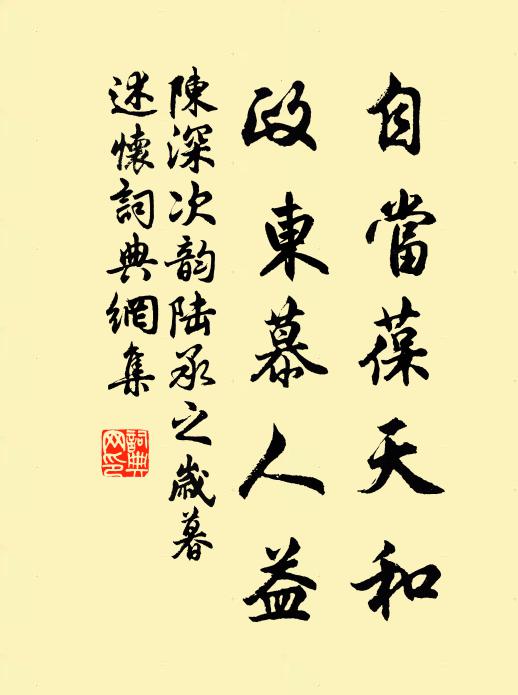 自當葆天和
政東慕人益
陳深次韵陸承之歲暮
述懷詞典網集
詞典
网印